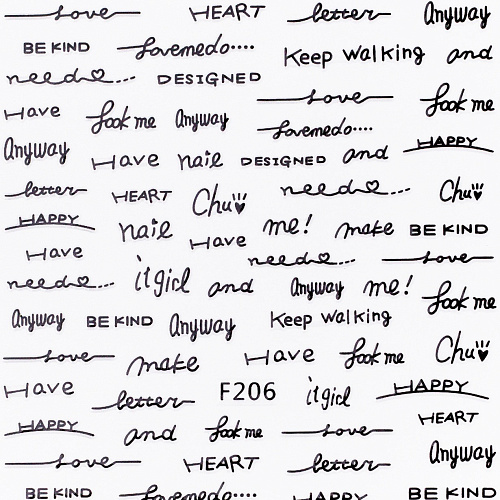 Love HEART letter Anyway
BE KIND Lovemedo.... Keep walking and
need... DESIGNED
Have Look me Anyway Love Look me
Lovemedo....
Anyway Have nail DESIGNED and HAPPY
letter HEART Chu need... Chu
HAPPY nail Have me! make BE KIND
Have need... Love
need... itgirl and Anyway me! Look me
Anyway BE KIND Anyway Keep walking
Love make Have Look me Chu
Have letter F206 itgirl HAPPY
HAPPY and Look me Love HEART
Love HEART letter Anyway
BE KIND Lovemedo.... HAPPY BE KIND